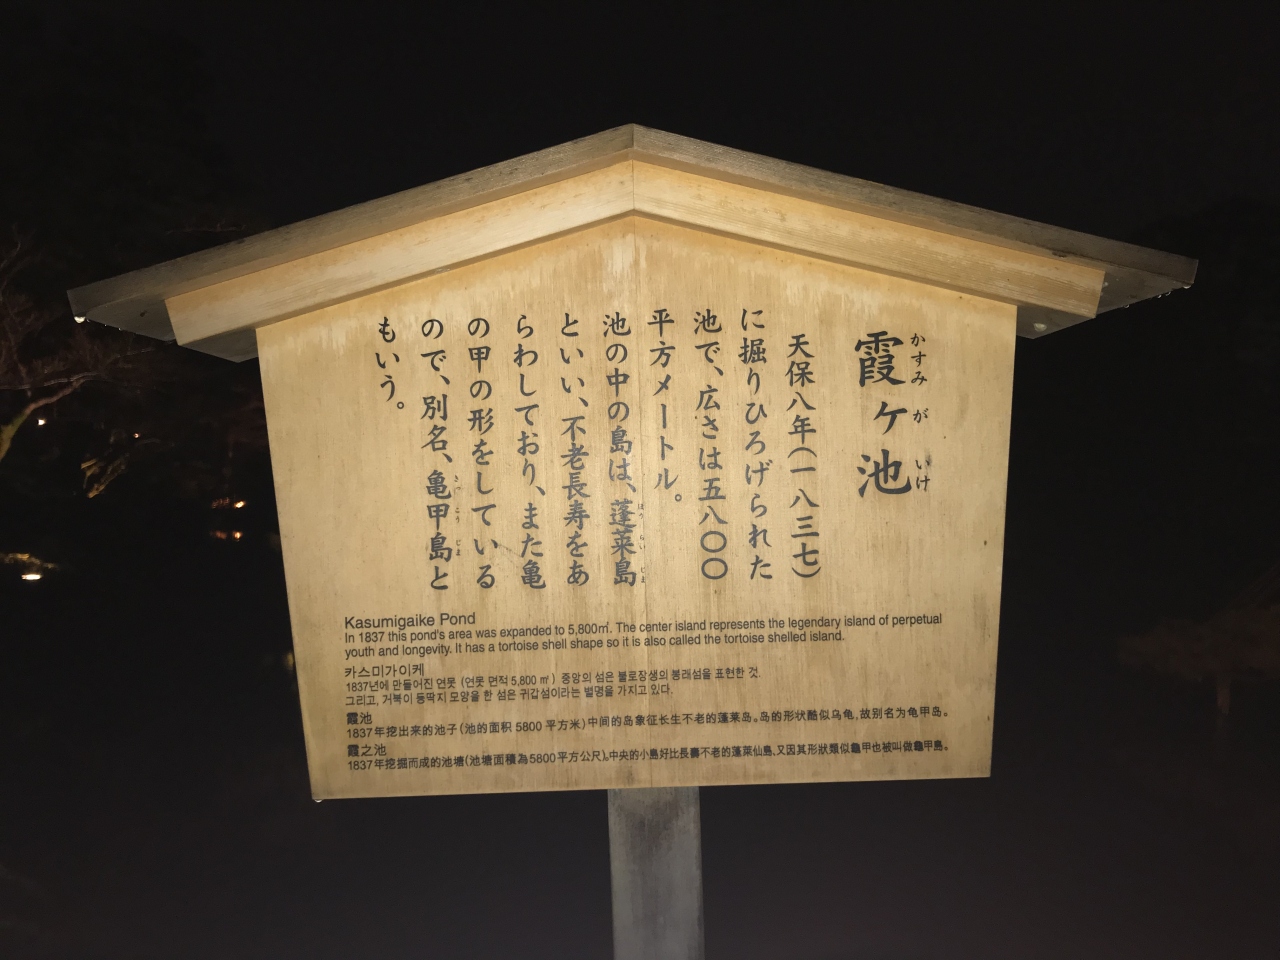 霞ヶ池
かすみがいけ
天保八年(一八三七)
に掘りひろげられた
池で、広さは五八〇〇
平方メートル。
池の中の島は、蓬莱島
ほうらいじま
といい、不老長寿をあ
らわしており、また亀
の甲の形をしている
ので、別名、亀甲島と
きっこうじま
もいう。
Kasumigaike Pond
In 1837 this pond's area was expanded to 5,800㎡. The center island represents the legendary island of perpetual
youth and longevity. It has a tortoise shell shape so it is also called the tortoise shelled island.
카스미가이케
1837년에 만들어진 연못 (연못 면적 5,800 ㎡) 중앙의 섬은 불로장생의 봉래섬을 표현한 것.
그리고, 거북이 등딱지 모양을 한 섬은 귀갑섬이라는 별명을 가지고 있다.
霞池
1837年挖出来的池子(池的面积 5800 平方米)中间的岛象征长生不老的蓬莱岛。岛的形状酷似乌龟,故别名为龟甲岛。
霞之池
1837年挖掘而成的池塘(池塘面積為5800平方公尺)。中央的小島好比長壽不老的蓬萊仙島、又因其形狀類似龜甲也被叫做龜甲島。